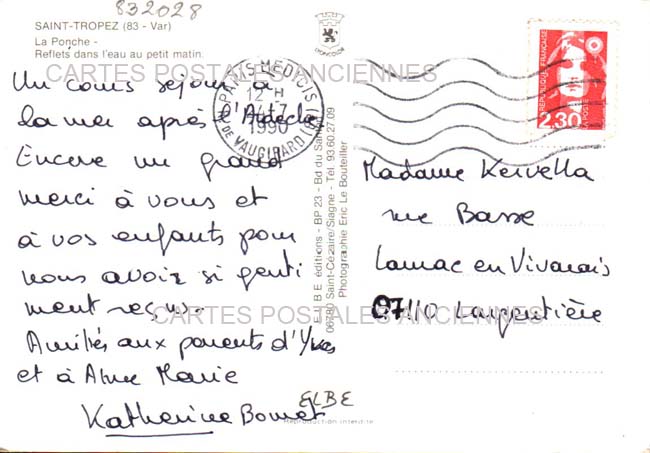 832028
SAINT-TROPEZ (83 - Var)
La Ponche -
Reflets dans l'eau au petit matin.
CARTES POSTALES ANCIENNES
Un cours sejour à
la mer après l'Ardèche
Encore un grand
merci à vous et
à vos enfants pour
nous avoir si genti
ment reçus.
Amitiés aux parents d'Yves
et à Anne Marie
Katherine Bomet
PARIS-MEDICIS
12 H
4-7
1990
R. DE VAUGIRARD (6e)
LYONCOLOR
E L B E éditions - BP 23 - Bd du
06780 Saint-Cézaire/Siagne - Tél. 93.60.27.09
Photographie Eric Le Bouteiller
REPUBLIQUE FRANÇAISE
2,30
POSTES
Madame Kervella
rue Basse
Lanac en Vivarais
07110 Largentière
CARTES POSTALES ANCIENNES
ELBE
Reproduction interdite